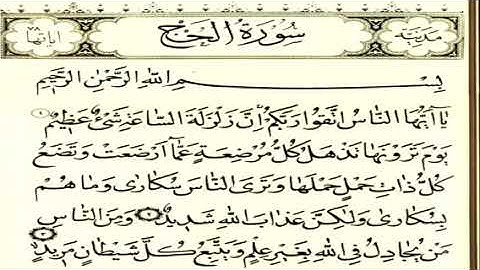 مدنية سورة الحج آياتها
بِسْمِ اللهِ الرَّحْمٰنِ الرَّحِيمِ
يَا أَيُّهَا النَّاسُ اتَّقُوا رَبَّكُمْ إِنَّ زَلْزَلَةَ السَّاعَةِ شَيْءٌ عَظِيمٌ ١
يَوْمَ تَرَوْنَهَا تَذْهَلُ كُلُّ مُرْضِعَةٍ عَمَّا أَرْضَعَتْ وَتَضَعُ
كُلُّ ذَاتِ حَمْلٍ حَمْلَهَا وَتَرَى النَّاسَ سُكَارَى وَمَا هُمْ
بِسُكَارَى وَلٰكِنَّ عَذَابَ اللهِ شَدِيدٌ ٢ وَمِنَ النَّاسِ
مَنْ يُجَادِلُ فِي اللهِ بِغَيْرِ عِلْمٍ وَيَتَّبِعُ كُلَّ شَيْطَانٍ مَرِيدٍ ٣